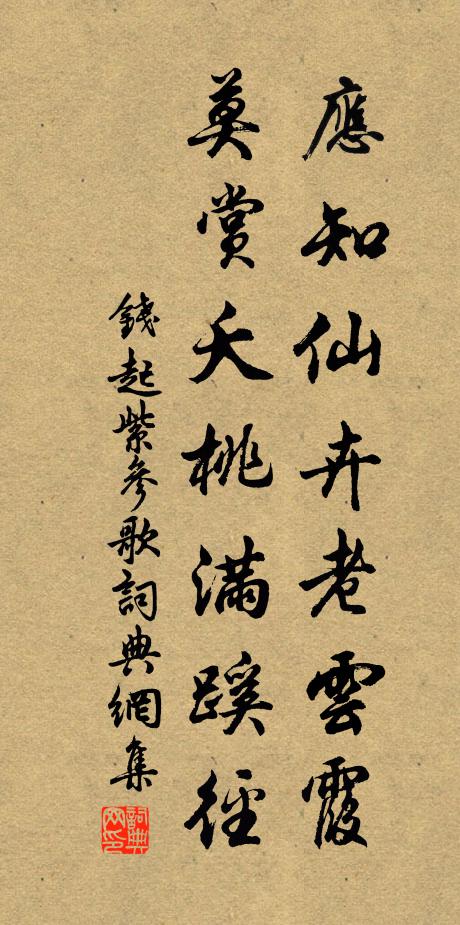 應知仙卉老雲霞
莫賞夭桃滿蹊徑
錢起紫參歌詞典網集
詞典网印